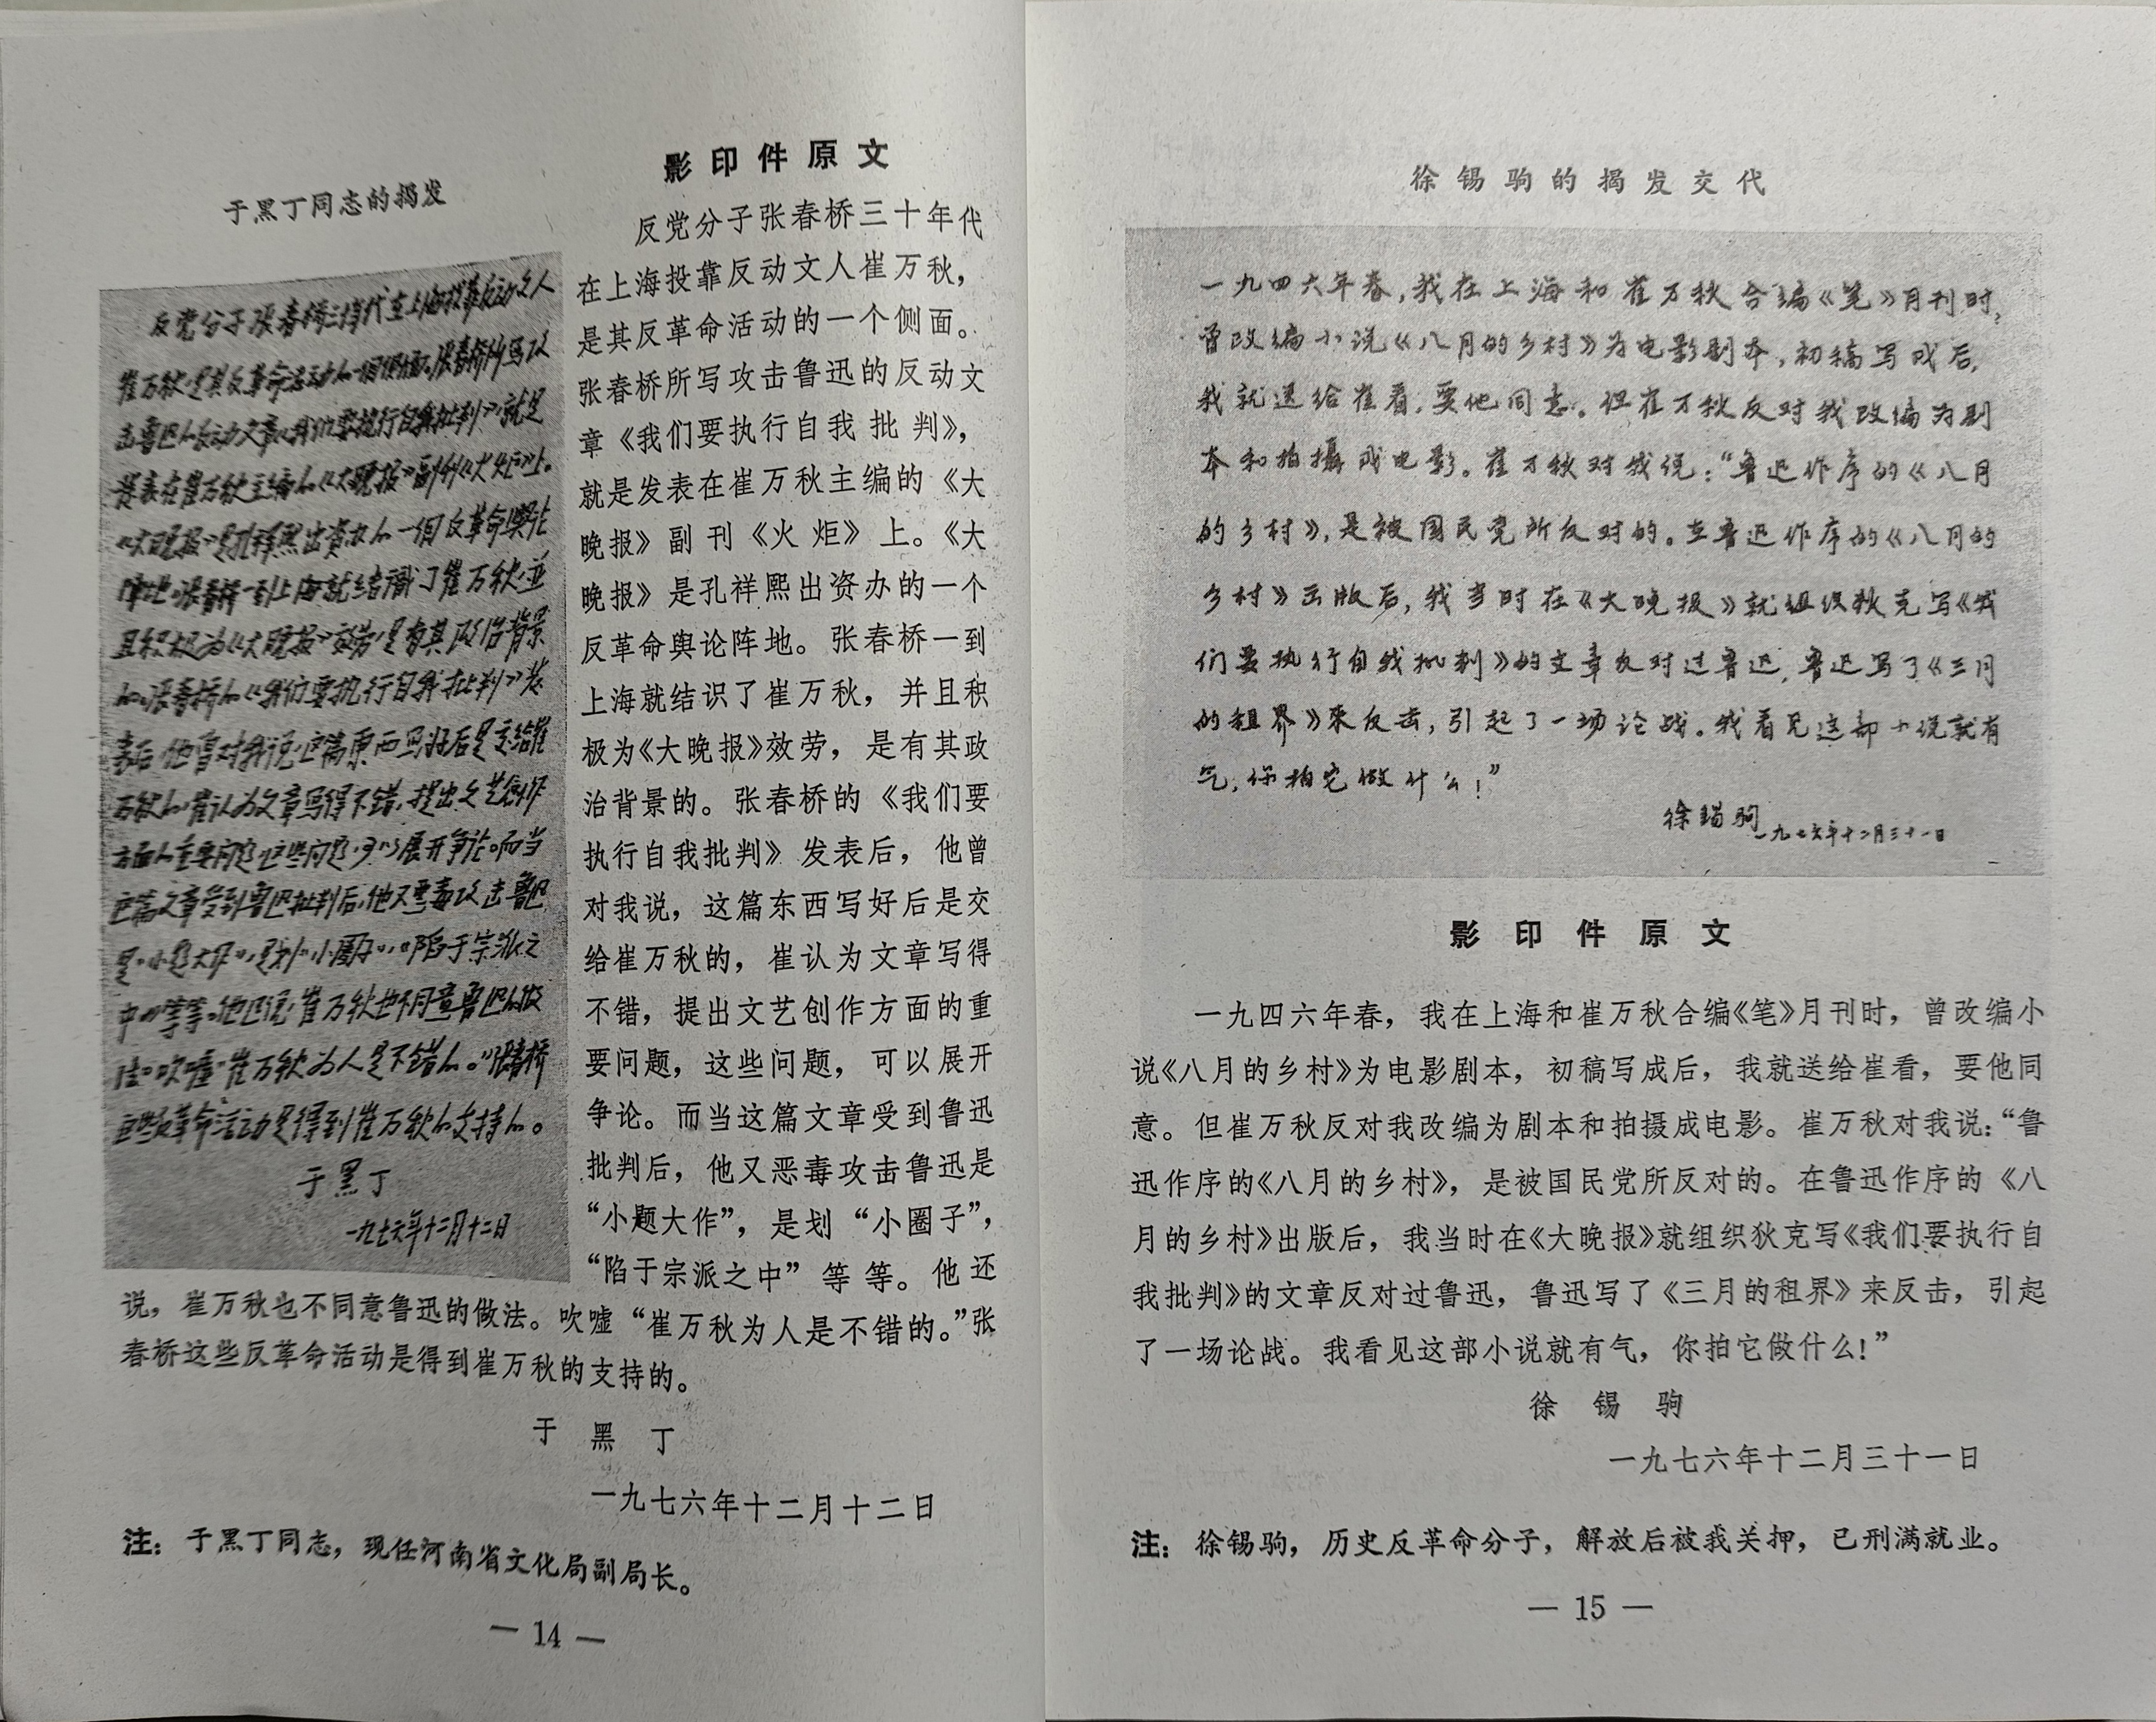 于黑丁同志的揭发
反党分子张春桥三十年代在上海投靠反动文人
崔万秋,是其反革命活动的一个侧面。张春桥所写攻
击鲁迅的反动文章《我们要执行自我批判》,就是
发表在崔万秋主编的《大晚报》副刊《火炬》上。
《大晚报》是孔祥熙出资办的一个反革命舆论
阵地。张春桥一到上海就结识了崔万秋,并
且积极为《大晚报》效劳,是有其政治背景
的。张春桥的《我们要执行自我批判》发
表后,他曾对我说,这篇东西写好后是交给崔
万秋的,崔认为文章写得不错,提出文艺创作
方面的重要问题,这些问题,可以展开争论。而当
这篇文章受到鲁迅批判后,他又恶毒攻击鲁迅
是“小题大作”,是划“小圈子”,“陷于宗派之
中”等等。他还说,崔万秋也不同意鲁迅的做
法。吹嘘“崔万秋为人是不错的。”张春桥
这些反革命活动是得到崔万秋的支持的。
于黑丁
一九七六年十二月十二日
影印件原文
反党分子张春桥三十年代
在上海投靠反动文人崔万秋,
是其反革命活动的一个侧面。
张春桥所写攻击鲁迅的反动文
章《我们要执行自我批判》,
就是发表在崔万秋主编的《大
晚报》副刊《火炬》上。《大
晚报》是孔祥熙出资办的一个
反革命舆论阵地。张春桥一到
上海就结识了崔万秋,并且积
极为《大晚报》效劳,是有其政
治背景的。张春桥的《我们要
执行自我批判》发表后,他曾
对我说,这篇东西写好后是交
给崔万秋的,崔认为文章写得
不错,提出文艺创作方面的重
要问题,这些问题,可以展开
争论。而当这篇文章受到鲁迅
批判后,他又恶毒攻击鲁迅是
“小题大作”,是划“小圈子”,
“陷于宗派之中”等等。他还
说,崔万秋也不同意鲁迅的做法。吹嘘“崔万秋为人是不错的。”张
春桥这些反革命活动是得到崔万秋的支持的。
于黑丁
一九七六年十二月十二日
注:于黑丁同志,现任河南省文化局副局长。
— 14 —
徐锡驹的揭发交代
一九四六年春,我在上海和崔万秋合编《笔》月刊时,
曾改编小说《八月的乡村》为电影剧本,初稿写成后,
我就送给崔看,要他同意。但崔万秋反对我改编为剧
本和拍摄成电影。崔万秋对我说:“鲁迅作序的《八月
的乡村》,是被国民党所反对的。在鲁迅作序的《八月的
乡村》出版后,我当时在《大晚报》就组织狄克写《我
们要执行自我批判》的文章反对过鲁迅,鲁迅写了《三月
的租界》来反击,引起了一场论战。我看见这部小说就有
气,你拍它做什么!”
徐锡驹
一九七六年十二月三十一日
影印件原文
一九四六年春,我在上海和崔万秋合编《笔》月刊时,曾改编小
说《八月的乡村》为电影剧本,初稿写成后,我就送给崔看,要他同
意。但崔万秋反对我改编为剧本和拍摄成电影。崔万秋对我说:“鲁
迅作序的《八月的乡村》,是被国民党所反对的。在鲁迅作序的《八
月的乡村》出版后,我当时在《大晚报》就组织狄克写《我们要执行自
我批判》的文章反对过鲁迅,鲁迅写了《三月的租界》来反击,引起
了一场论战。我看见这部小说就有气,你拍它做什么!”
徐锡驹
一九七六年十二月三十一日
注:徐锡驹,历史反革命分子,解放后被我关押,已刑满就业。
— 15 —